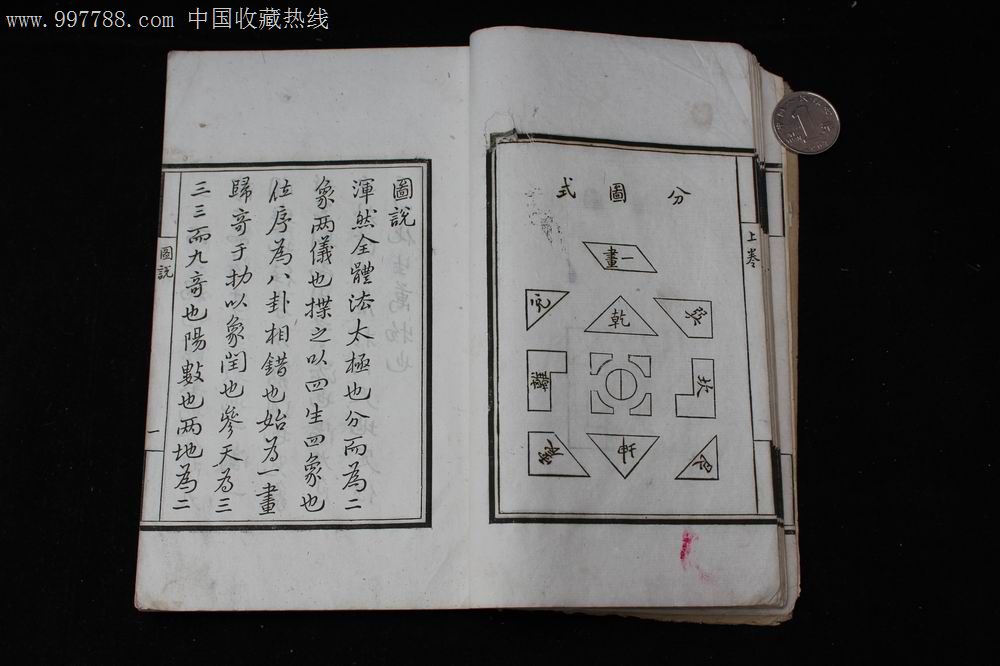 www.997788.com 中国收藏热线
上卷
分圖式
一畫
巽
乾
兌
坎
離
艮
震
圖說
渾然全體法太極也分而為二
象两儀也揲之以四生四象也
位序為八卦相錯也始為一畫
歸奇于扐以象閏也參天為三
三三而九奇也陽數也两地為二
圖說
一
1